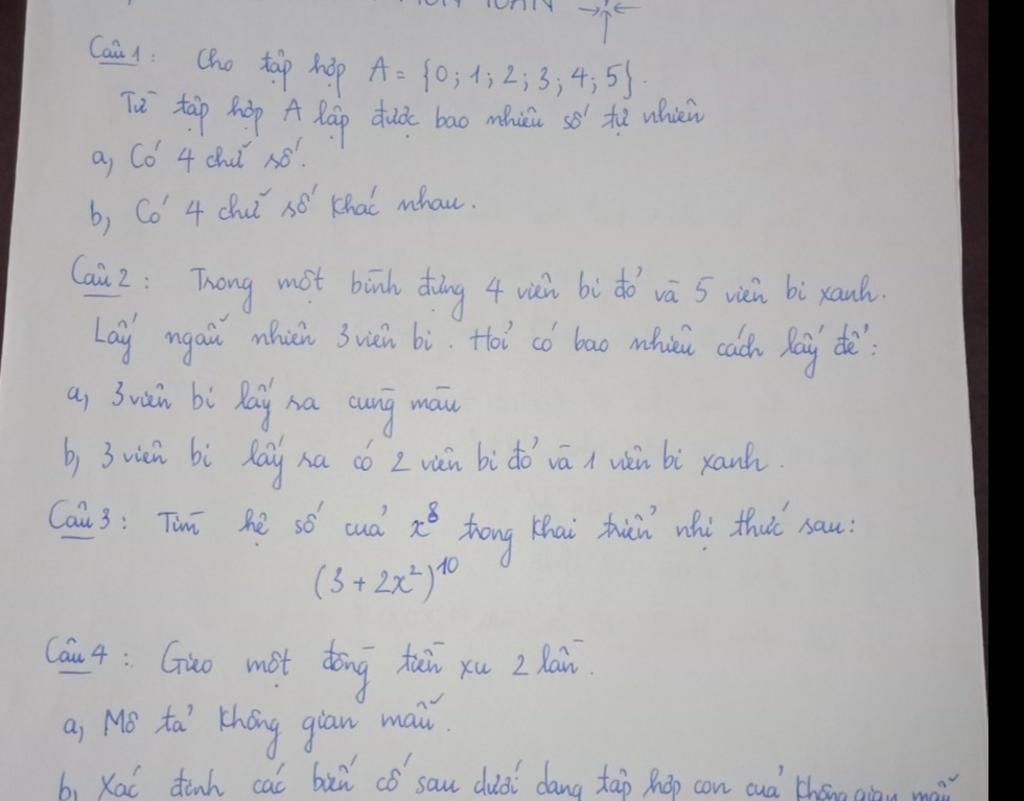 MÔN TOÁN
Câu 1: Cho tập hợp A = {0; 1; 2; 3; 4; 5}.
Từ tập hợp A lập được bao nhiêu số tự nhiên
a, Có 4 chữ số.
b, Có 4 chữ số khác nhau.
Câu 2: Trong một bình đựng 4 viên bi đỏ và 5 viên bi xanh.
Lấy ngẫu nhiên 3 viên bi. Hỏi có bao nhiêu cách lấy để:
a, 3 viên bi lấy ra cùng màu
b, 3 viên bi lấy ra có 2 viên bi đỏ và 1 viên bi xanh.
Câu 3: Tìm hệ số của x⁸ trong khai triển nhị thức sau:
(3 + 2x²)¹⁰
Câu 4: Gieo một đồng tiền xu 2 lần.
a, Mô tả không gian mẫu.
b, Xác định các biến cố sau dưới dạng tập hợp con của không gian mẫu